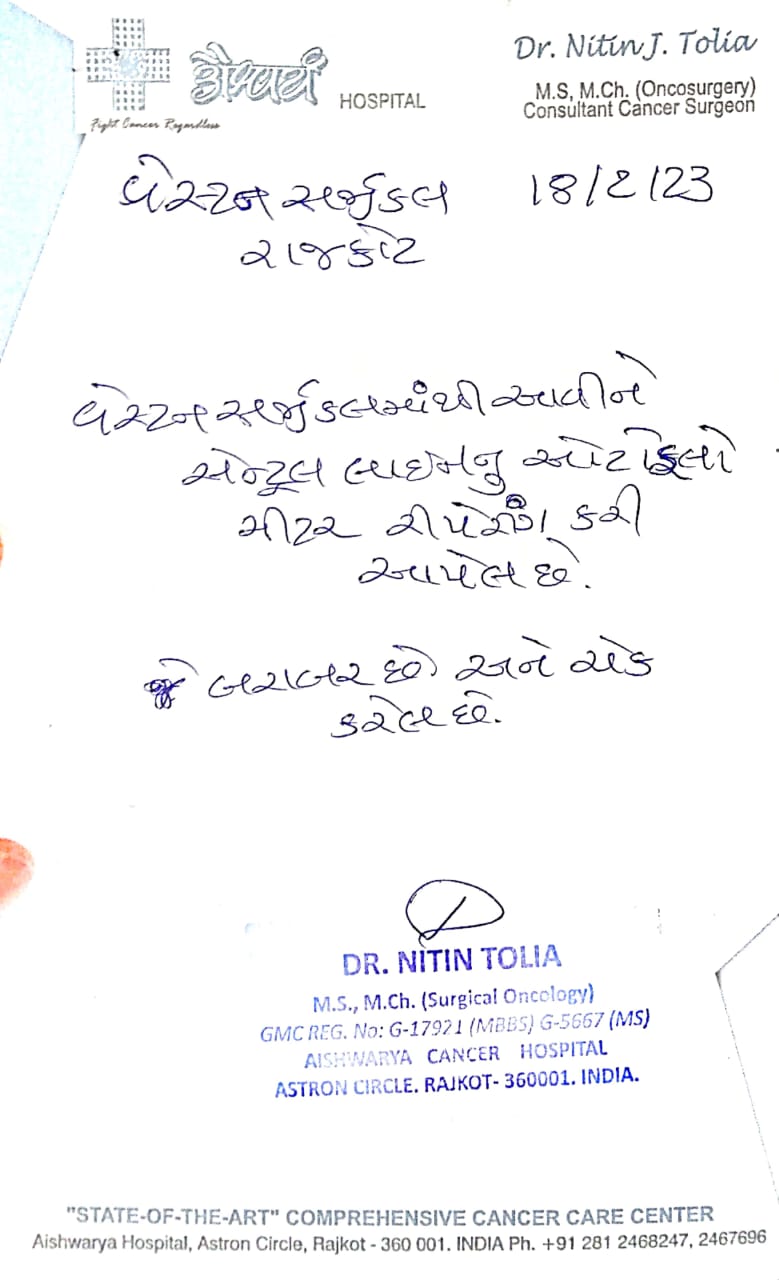 ऐश्वर्य HOSPITAL
Fight Cancer Regardless
Dr. Nitin J. Tolia
M.S, M.Ch. (Oncosurgery)
Consultant Cancer Surgeon
વેસ્ટન સર્જીકલ 18/2/23
રાજકોટ
વેસ્ટન સર્જીકલમાંથી આવીને
સેન્ટ્રલ લાઇનનું ઓટો ફ્લો
મીટર રીપેરીંગ કરી
આપેલ છે.
જે બરાબર છે અને ચેક
કરેલ છે.
DR. NITIN TOLIA
M.S., M.Ch. (Surgical Oncology)
GMC REG. No: G-17921 (MBBS) G-5667 (MS)
AISHWARYA CANCER HOSPITAL
ASTRON CIRCLE. RAJKOT- 360001. INDIA.
"STATE-OF-THE-ART" COMPREHENSIVE CANCER CARE CENTER
Aishwarya Hospital, Astron Circle, Rajkot - 360 001. INDIA Ph. +91 281 2468247, 2467696